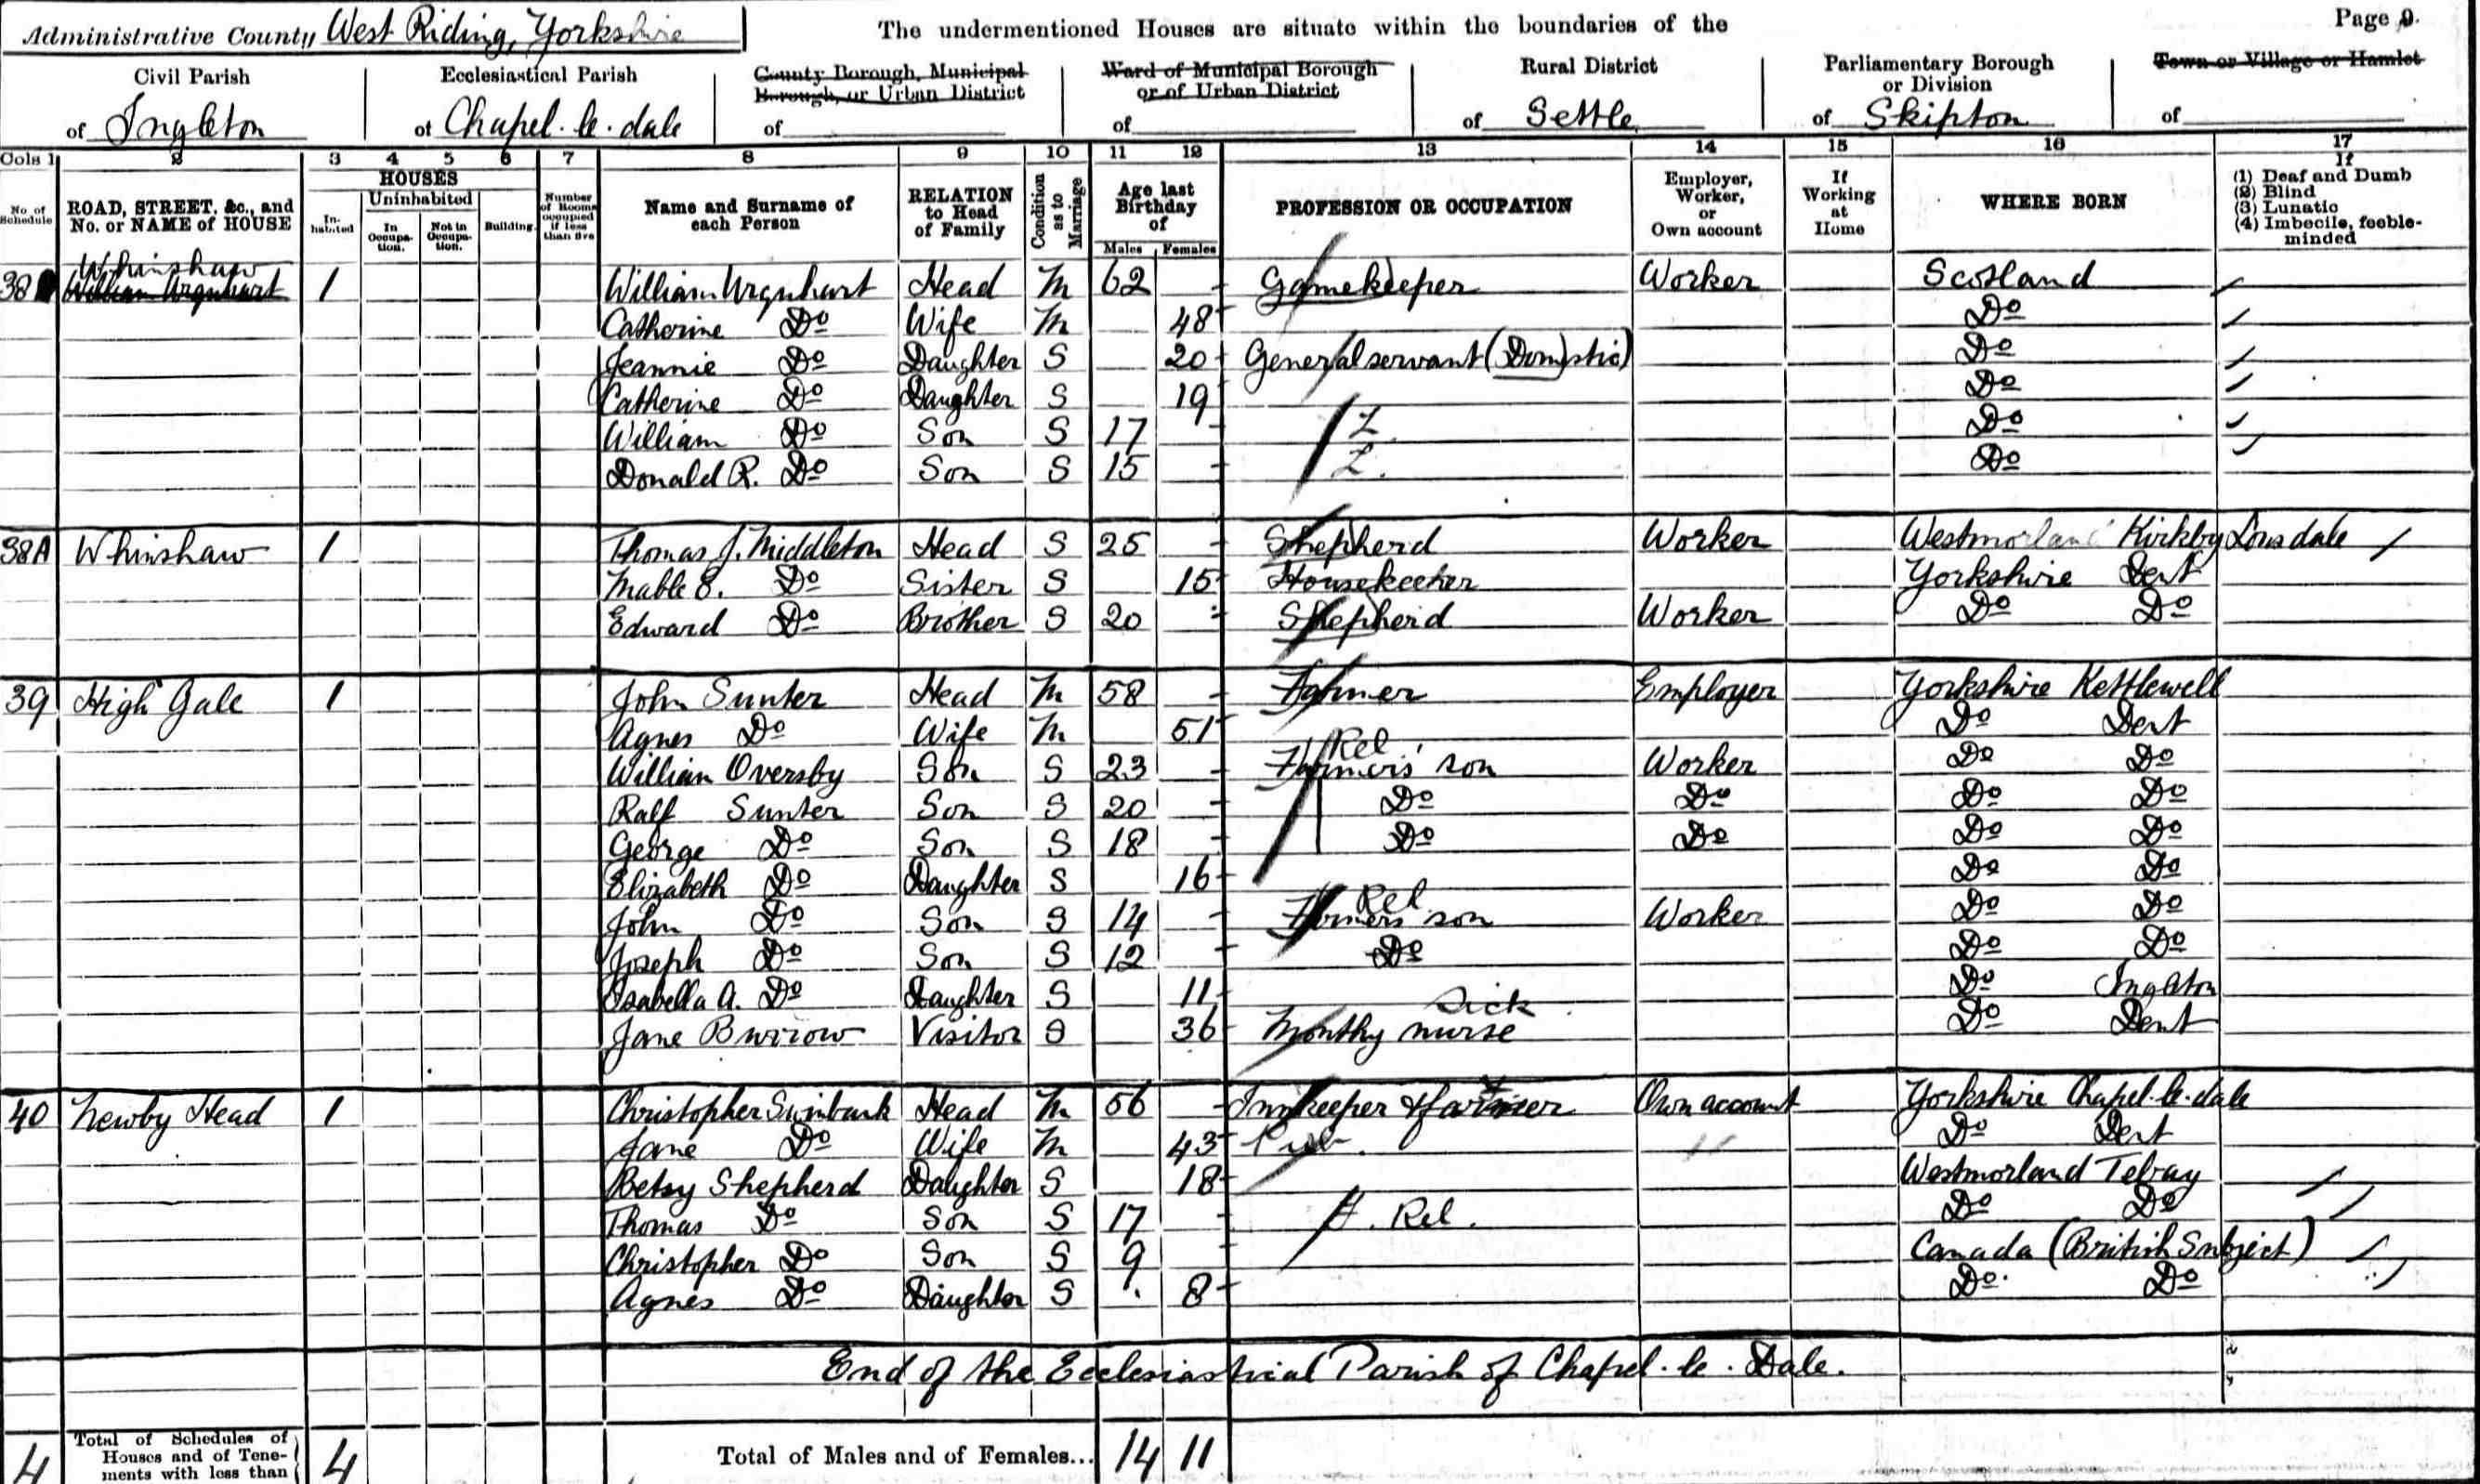 Administrative County West Riding, Yorkshire
The undermentioned Houses are situate within the boundaries of the
Page 9.
Civil Parish
of Ingleton
Ecclesiastical Parish
of Chapel-le-dale
County Borough, Municipal
Borough, or Urban District
of
Ward of Municipal Borough
or of Urban District
of
Rural District
of Settle
Parliamentary Borough
or Division
of Skipton
Town or Village or Hamlet
of
Cols 1 2 3 4 5 6 7 8 9 10 11 12 13 14 15 16 17
No. of Schedule
ROAD, STREET, &c., and No. or NAME of HOUSE
HOUSES
In-habited
Uninhabited
In Occupa-tion.
Not in Occupa-tion.
Building.
Number of Rooms occupied if less than five
Name and Surname of each Person
RELATION to Head of Family
Condition as to Marriage
Age last Birthday of
Males Females
PROFESSION OR OCCUPATION
Employer, Worker, or Own account
If Working at Home
WHERE BORN
If
(1) Deaf and Dumb
(2) Blind
(3) Lunatic
(4) Imbecile, feeble-minded
Whinshaw
38 William Urquhart 1 William Urquhart Head M 62 Gamekeeper Worker Scotland
Catherine Do Wife M 48 Do
Jeannie Do Daughter S 20 General servant (Domestic) Do
Catherine Do Daughter S 19 Do
William Do Son S 17 Do
Donald R. Do Son S 15 Do
38A Whinshaw 1 Thomas J. Middleton Head S 25 Shepherd Worker Westmorland Kirkby Lonsdale
Mable E. Do Sister S 15 Housekeeper Yorkshire Dent
Edward Do Brother S 20 Shepherd Worker Do Do
39 High Gale 1 John Sunter Head M 58 Farmer Employer Yorkshire Kettlewell
Agnes Do Wife M 51 Do Dent
Rel
William Oversby Son S 23 Farmers' son Worker Do Do
Ralf Sunter Son S 20 Do Do Do Do
George Do Son S 18 Do Do Do Do
Elizabeth Do Daughter S 16 Do Do
Rel
John Do Son S 14 Farmers son Worker Do Do
Joseph Do Son S 12 Do Do Do
Isabella A. Do Daughter S 11 Do Ingleton
Sick
Jane Burrow Visitor S 36 Monthy nurse Do Dent
40 Newby Head 1 Christopher Swinbank Head M 56 Innkeeper & farmer Own account Yorkshire Chapel-le-dale
Jane Do Wife M 43 Pub Do Dent
Betsy Shepherd Daughter S 18 Westmorland Tebay
Thomas Do Son S 17 F. Rel. Do Do
Christopher Do Son S 9 Canada (British Subject)
Agnes Do Daughter S 8 Do Do
End of the Ecclesiastical Parish of Chapel-le-Dale.
4 Total of Schedules of Houses and of Tene-ments with less than 4 Total of Males and of Females... 14 11